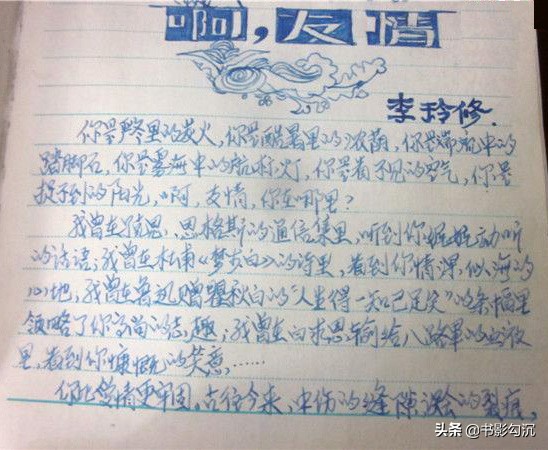 啊，友情
李玲修.
你是严冬里的炭火，你是酷暑里的浓荫，你是湍流中的
踏脚石，你是雾海中的航标灯，你是看不见的空气，你是
捉不到的阳光，啊，友情，你在哪里？
我曾在马克思、恩格斯的通信集里，听到你娓娓动听
的话语；我曾在杜甫《梦李白》的诗里，看到你情深似海的
心地，我曾在鲁迅赠瞿秋白的"人生得一知己足矣"的条幅里
领略了你高尚的志趣；我曾在白求恩输给八路军的血液
里，看到你慷慨的笑意，……
你比爱情更牢固，古往今来，中伤的缝隙，误会的裂痕，
头条 @书影勾沉